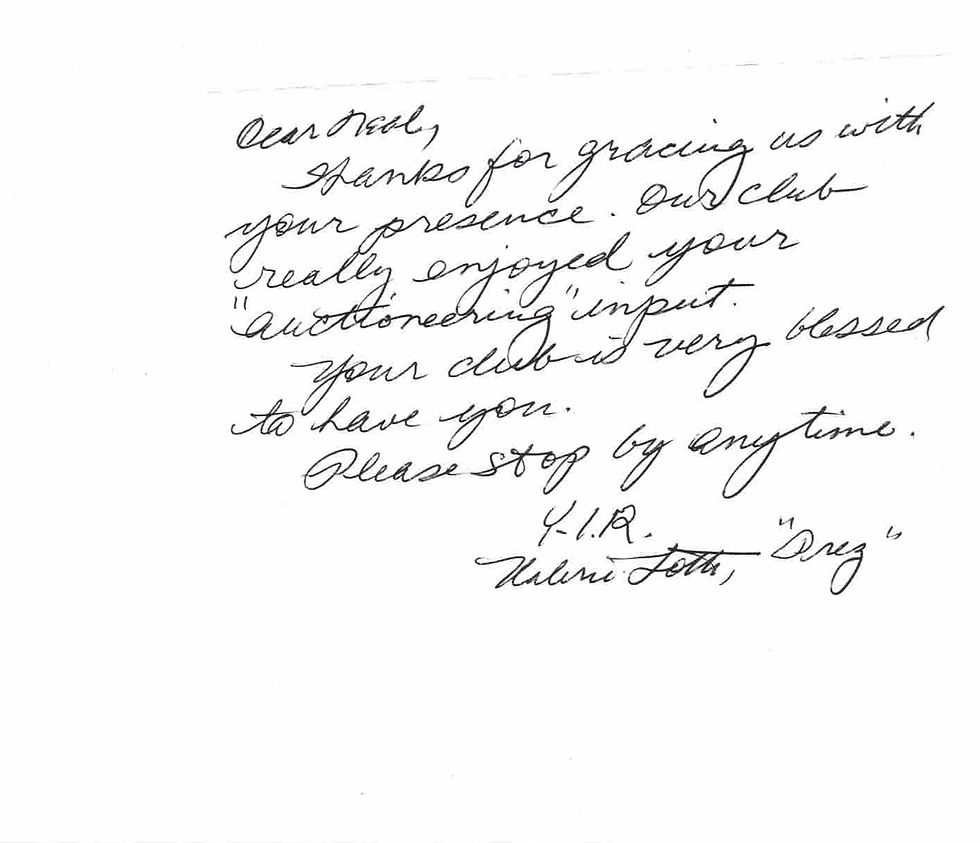 Dear Neal,
Thanks for gracing us with
your presence. Our club
really enjoyed your
"auctioneering" input.
Your club is very blessed
to have you.
Please stop by anytime.
Y-I.R.
Valerie "Prez"